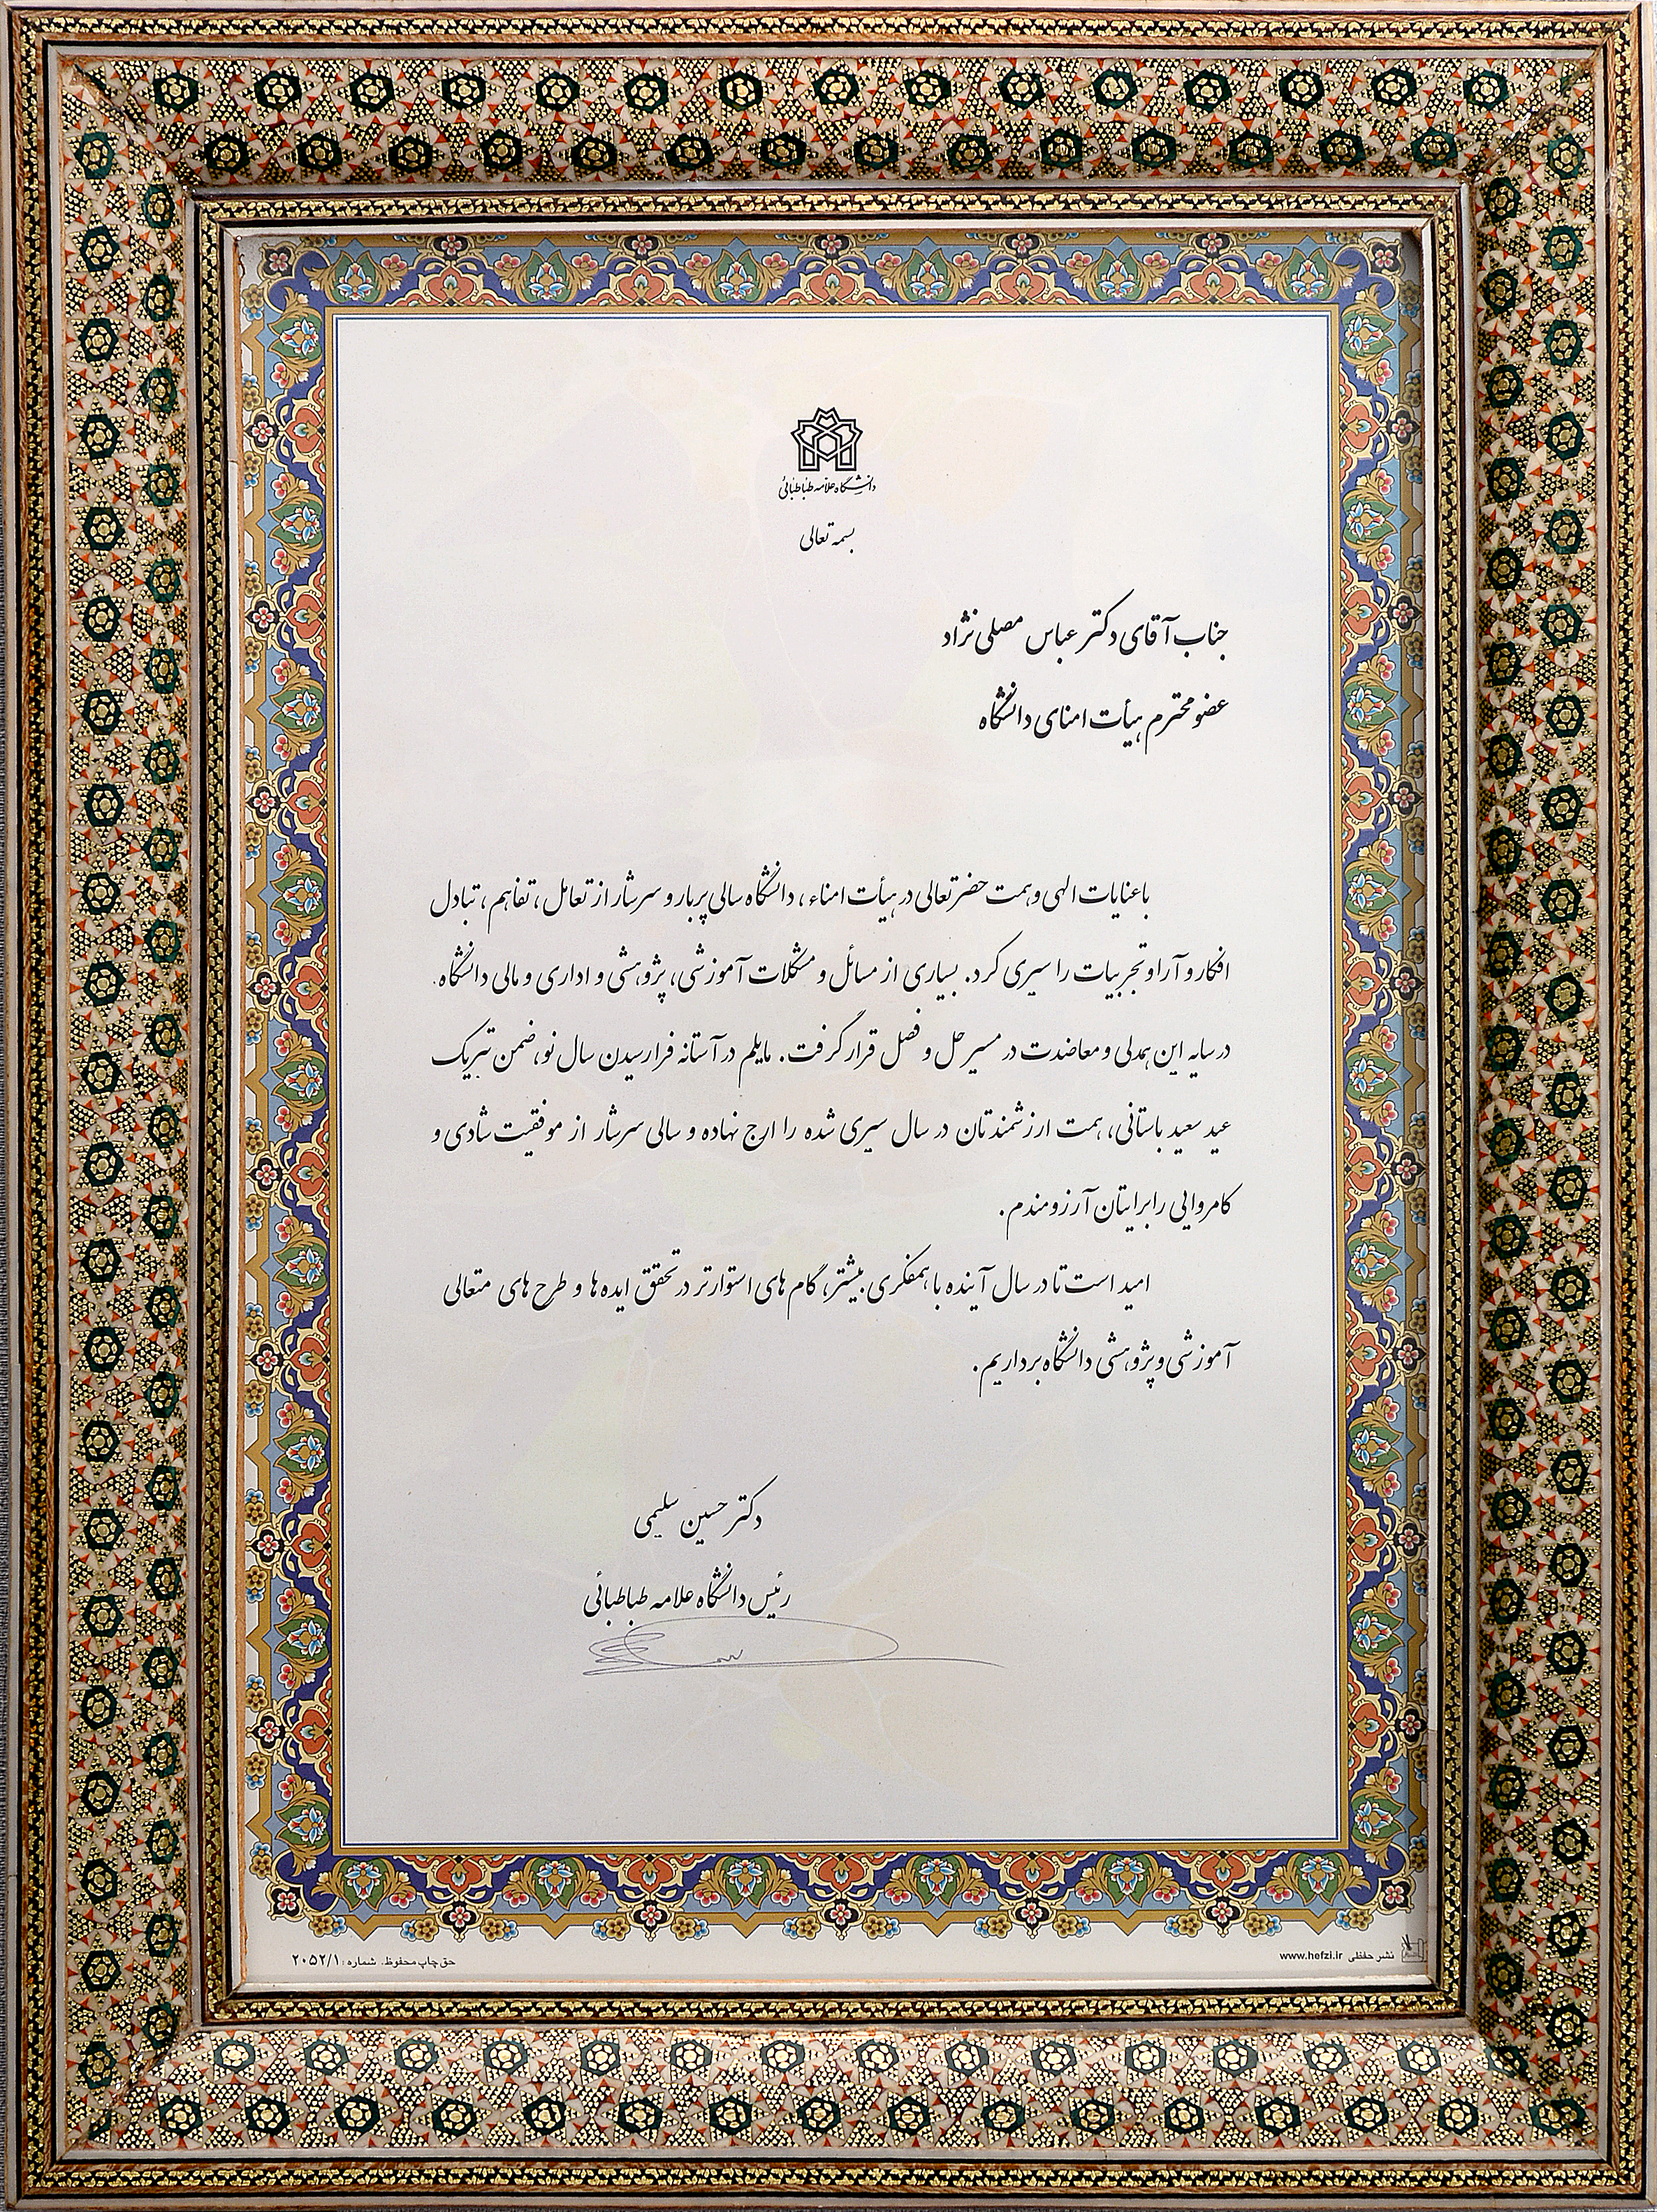 دانشگاه علامه طباطبائی
بسمه تعالی
جناب آقای دکتر عباس مصلی نژاد
عضو محترم هیأت امنای دانشگاه
با عنایات الهی و همت حضرتعالی در هیأت امناء، دانشگاه سالی پربار و سرشار از تعامل، تفاهم، تبادل
افکار و آرا و تجربیات را سپری کرد. بسیاری از مسائل و مشکلات آموزشی، پژوهشی و اداری و مالی دانشگاه.
در سایه این همدلی و معاضدت در مسیر حل و فصل قرار گرفت. مایلم در آستانه فرا رسیدن سال نو، ضمن تبریک
عید سعید باستانی، همت ارزشمندتان در سال سپری شده را ارج نهاده و سالی سرشار از موفقیت شادی و
کامروایی را برایتان آرزومندم.
امید است تا در سال آینده با همفکری بیشتر، گام های استوارتر در تحقق ایده ها و طرح های متعالی
آموزشی و پژوهشی دانشگاه برداریم.
دکتر حسین سلیمی
رئیس دانشگاه علامه طباطبائی
نشر حفظی www.hefzi.ir
حق چاپ محفوظ. شماره: ۲۰۵۲/۱